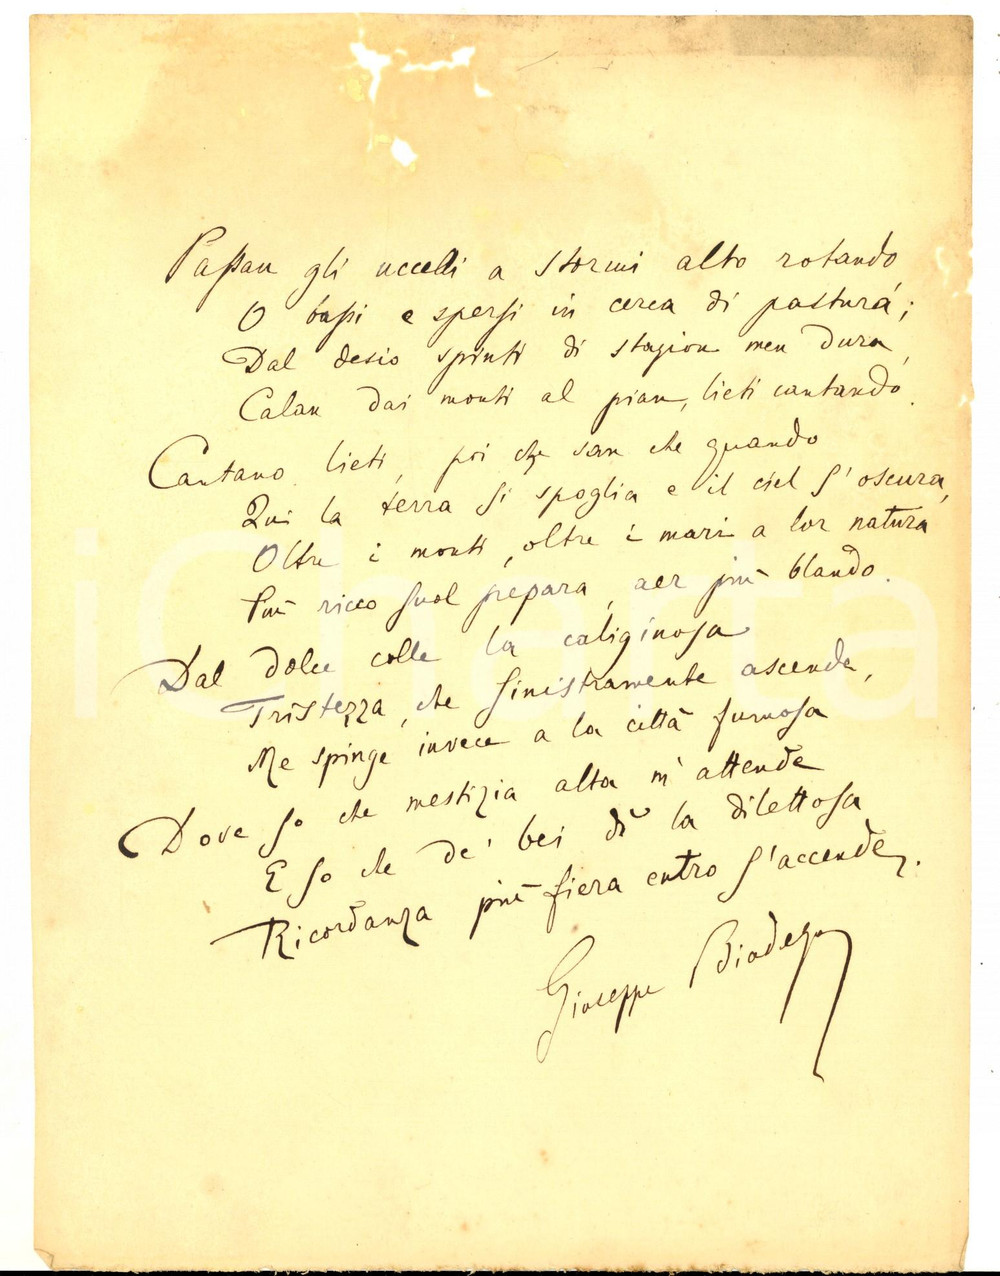 Passan gli uccelli a stormi alto rotando
O bassi e spersi in cerca di pastura;
Dal desio spinti di stagion men dura,
Calan dai monti al pian, lieti cantando.
Cantano lieti, poi che san che quando
Qui la terra si spoglia e il ciel s'oscura,
Oltre i monti, oltre i mari a lor natura
Più ricco suol prepara, aer più blando.
Dal dolce colle la caliginosa
Tristezza, che sinistramente ascende,
Me spinge invece a la città fumosa
Dove so che mestizia alta m'attende
E so che de' bei dì la dilettosa
Ricordanza più fiera entro s'accende.
Giuseppe Biadego
iCharta